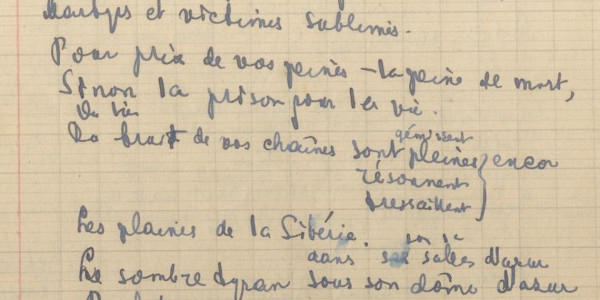 Martyrs et victimes sublimes.
Pour prix de vos peines – la peine de mort,
Sinon la prison pour les vie.
Du bruit de vos chaînes sont pleines encor
gémissent
résonnent
tressaillent
Les plaines de la Sibérie.
dans ses salles d'azur
Le sombre tyran sous son dôme d'azur